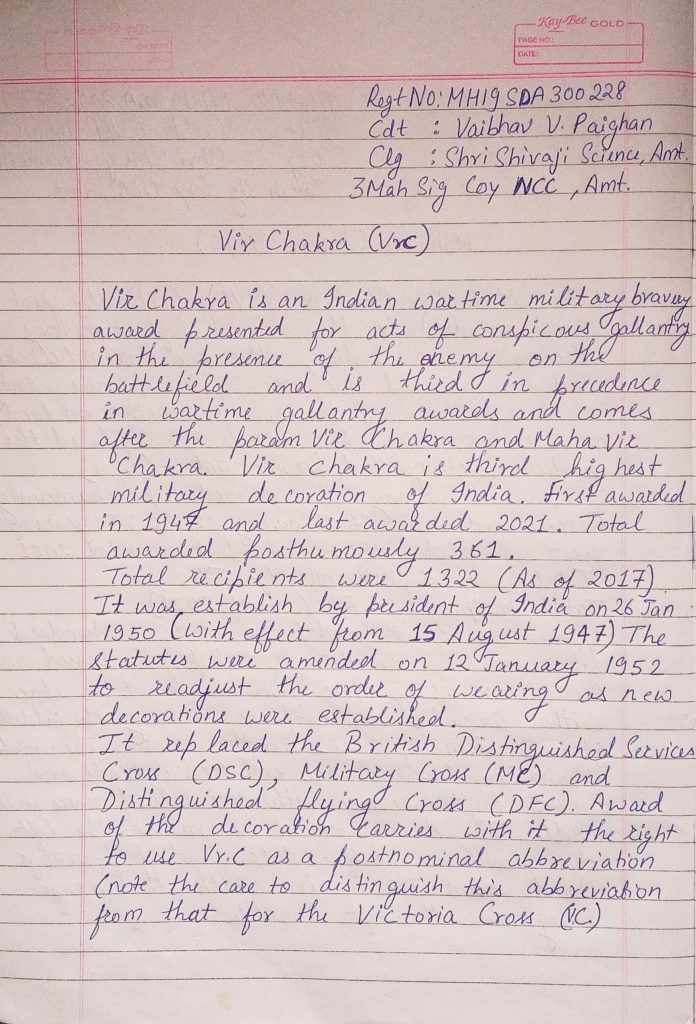 Kay-Bee GOLD
PAGE NO.:
DATE:
Regt No: MH19 SDA 300 228
Cdt : Vaibhav V. Paighan
Clg : Shri Shivaji Science, Amt.
3 Mah Sig Coy NCC, Amt.
Vir Chakra (Vrc)
Vir Chakra is an Indian wartime military bravery
award presented for acts of conspicous gallantry
in the presence of the enemy on the
battlefield and is third in precedence
in wartime gallantry awards and comes
after the param Vir Chakra and Maha Vir
Chakra. Vir chakra is third highest
military decoration of India. First awarded
in 1947 and last awarded 2021. Total
awarded posthumously 361.
Total recipients were 1322 (As of 2017)
It was establish by president of India on 26 Jan
1950 (with effect from 15 August 1947) The
Statutes were amended on 12 January 1952
to readjust the order of wearing as new
decorations were established.
It replaced the British Distinguished Services
Cross (DSC), Military Cross (MC) and
Distinguished flying Cross (DFC). Award
of the decoration carries with it the right
to use Vr.C as a postnominal abbreviation
(note the care to distinguish this abbreviation
from that for the Victoria Cross (VC.)